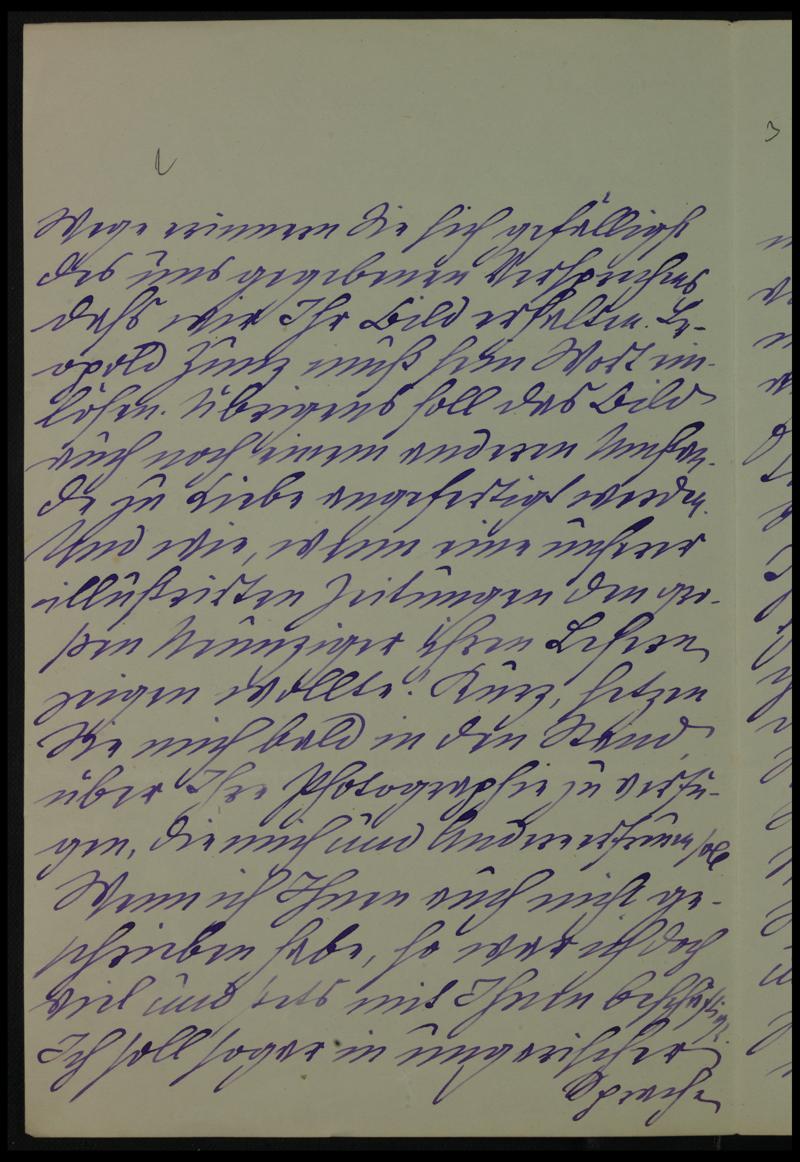 2
Wege erinnern Sie sich gefälligst
des uns gegebenen Versprechens
daß wir Ihr Bild erhalten. Le-
opold Zunz muß sein Wort ein-
lösen. Übrigens soll das Bild
auch noch einem anderen Umstan-
de zu Liebe angefertigt werden.
Und wie, wenn eine unserer
illustrirten Zeitungen den gro-
ßen Neunziger ihren Lesern
zeigen wollte? Kurz, setzen
Sie mich bald in den Stand
über Ihre Photographie zu verfü-
gen, die mich und Andere erfreuen soll
Wenn ich Ihnen auch nicht ge-
schrieben habe, so war ich doch
viel und stets mit Ihnen beschäftigt.
Ich soll sogar in ungarischer
Sprache
3